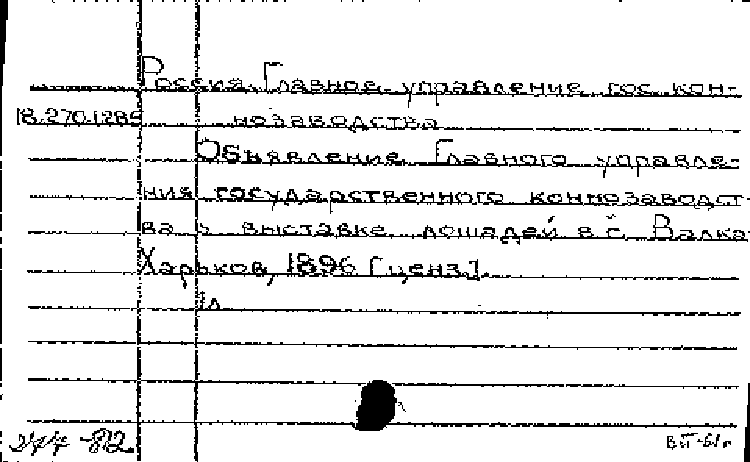 Россия. Главное управление гос. кон-
18.270.1285 нозаводства
Объявление Главного управле-
ния государственного коннозаводст-
ва о выставке лошадей в г. Валка
Харьков, 1896 [ценз.].
1л
244-812
ВП-61г